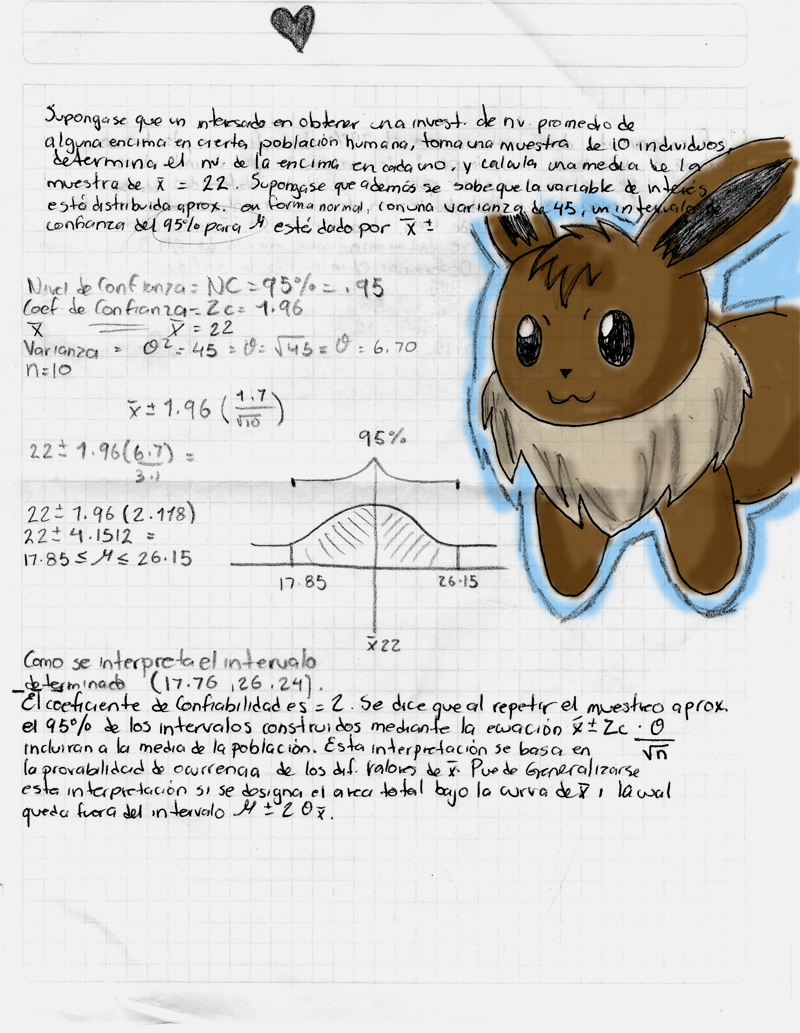 Supongase que un interesado en obtener una invest. de nv. promedio de
alguna encima en cierta población humana, toma una muestra de 10 individuos,
determina el nv. de la encima en cada uno, y calcula una media de la
muestra de x̄ = 22. Supongase que además se sabe que la variable de interés
está distribuida aprox. en forma normal, con una varianza de 45, un intervalo de
confianza del 95% para M está dado por x̄ ±
Nivel de Confianza = NC = 95% = .95
Coef. de Confianza = Zc = 1.96
x̄ x̄ = 22
Varianza = θ² = 45 = θ = √45 = θ = 6.70
n=10
x̄ ± 1.96 (1.7/√10)
22 ± 1.96 (6.7/3.1) =
22 ± 1.96 (2.118)
22 ± 4.1512 =
17.85 ≤ M ≤ 26.15
95%
17.85 26.15
x̄ 22
Como se interpreta el intervalo
determinado (17.76, 26.24).
El coeficiente de Confiabilidad es = 2. Se dice que al repetir el muestreo aprox.
el 95% de los intervalos construidos mediante la ecuación x̄ ± Zc · θ/√n
incluiran a la media de la población. Esta interpretación se basa en
la provabilidad de ocurrencia de los dif. valores de x̄. Puede Generalizarse
esta interpretación si se designa el area total bajo la curva de x̄, la cual
queda fuera del intervalo M ± 2 θx̄.